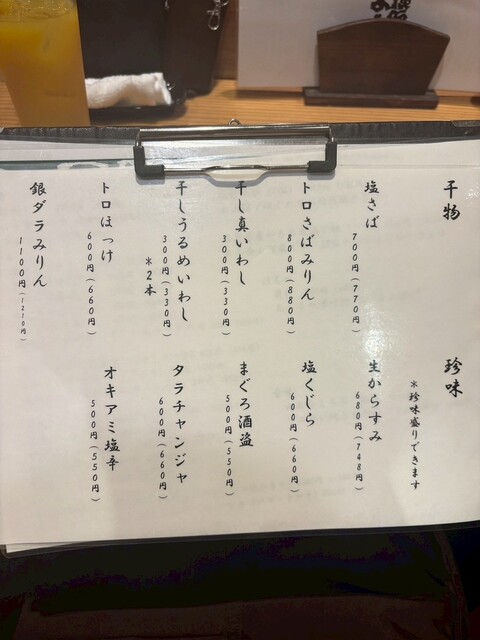 干物
塩さば
700円(770円)
トロさばみりん
800円(880円)
干し真いわし
300円(330円)
干しうるめいわし
300円(330円)
*2本
トロほっけ
600円(660円)
銀ダラみりん
1100円(1210円)
珍味
*珍味盛りできます
生からすみ
680円(748円)
塩くじら
600円(660円)
まぐろ酒盗
500円(550円)
タラチャンジャ
600円(660円)
オキアミ塩辛
500円(550円)